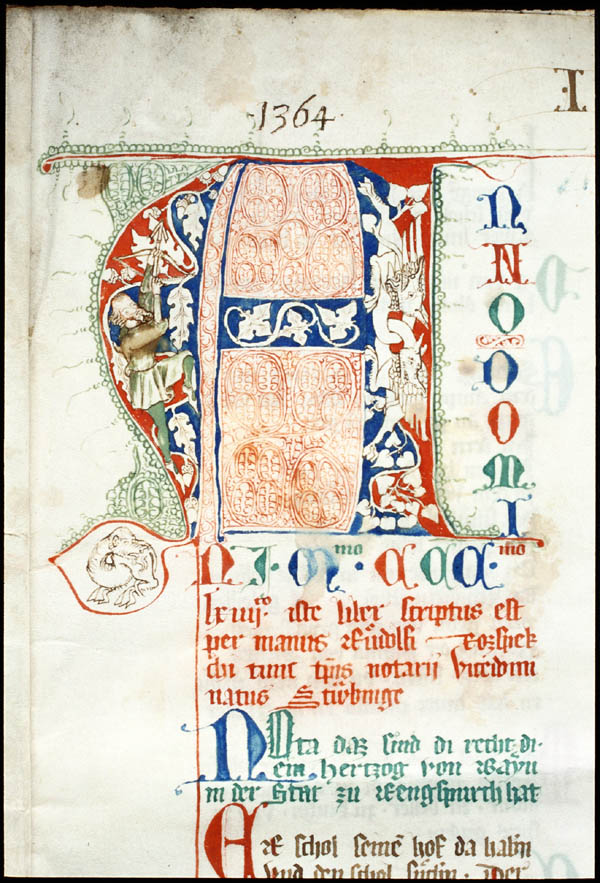 1364
·I
A
N
N
O
D
O
M
I
NI· M·mo CCC·mo
lxiiij·to iste liber scriptus est
per manus Rudolfi
chi tunc tp̄is notarii
natus
Nota daz sind di recht di
ein hertzog von
in der Stat zu hat
Er schol seinē hof da habn
vnd den schol Der